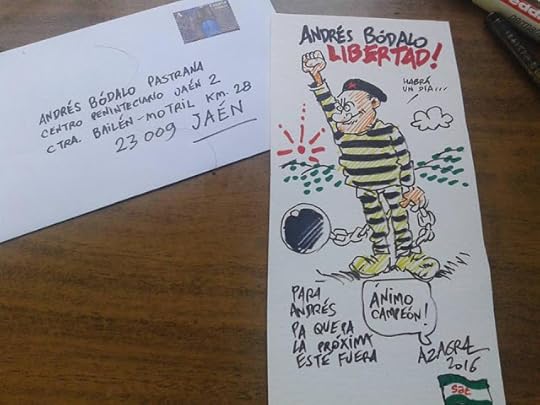 ANDRÉS BÓDALO PASTRANA
CENTRO PENINTECIARIO JAÉN 2
CTRA. BAILÉN-MOTRIL KM. 28
23009 JAÉN
ANDRÉS BÓDALO
LIBERTAD!
HABRÁ
UN DÍA...
PARA
ANDRÉS
PA QUE PA
LA PRÓXIMA
ESTE FUERA
ÁNIMO
CAMPEÓN!
AZAGRA
2016
sat